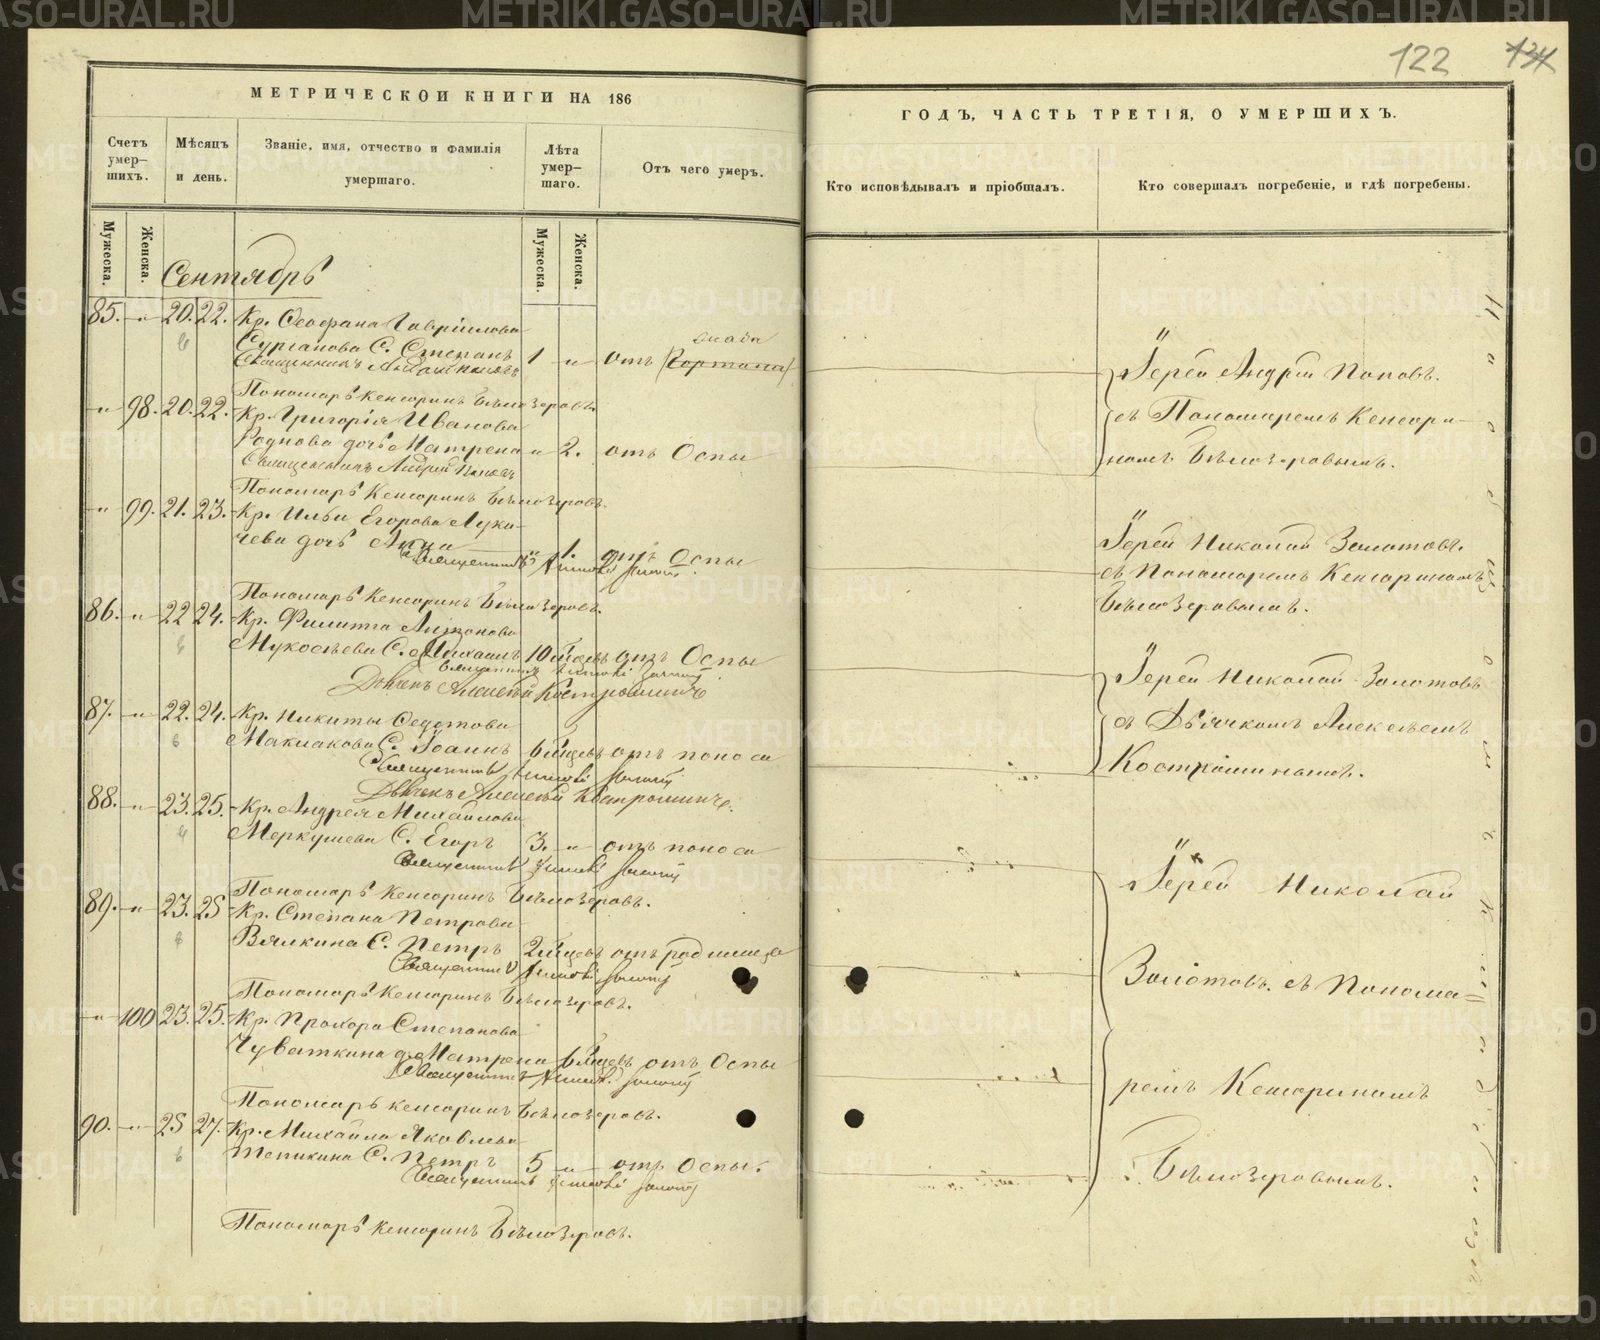 122
МЕТРИЧЕСКОЙ КНИГИ НА 186
ГОДЪ, ЧАСТЬ ТРЕТІЯ, О УМЕРШИХЪ.
Счетъ умер-шихъ.
Мѣсяцъ и день.
Званіе, имя, отчество и фамилія умершаго.
Лѣта умер-шаго.
Отъ чего умеръ.
Кто исповѣдывалъ и пріобщалъ.
Кто совершалъ погребеніе, и гдѣ погребены.
Мужеска.
Женска.
Мужеска.
Женска.
Сентябрь
85. — „ — 20. 22. Кр. Ѳеофана Гавріилова
Сурганова С. Степанъ 1 „ отъ
Священникъ Андрей Поповъ
Пономарь Кенсоринъ Бѣлозеровъ.
„ 98. 20. 22. Кр. Григорія Иванова
Роднова дочь Матрена „ 2. отъ Оспы
Священникъ Андрей Поповъ
Пономарь Кенсоринъ Бѣлозеровъ.
„ 99. 21. 23. Кр. Ильи Егорова Лука-
чева дочь Анна „ 1. отъ Оспы
Священникъ Николай Золотовъ
Пономарь Кенсоринъ Бѣлозеровъ.
86. „ 22 24. Кр. Филиппа
Мукосѣева С. Михаилъ 10 мѣцевъ отъ Оспы
Священникъ Николай Золотовъ
Дьячекъ Алексѣй Костроминъ
87. „ 22. 24. Кр. Никиты Ѳедотова
Маклакова С. Іоаннъ 6 мѣцевъ отъ поноса
Священникъ Николай Золотовъ
Дьячекъ Алексѣй Костроминъ.
88. „ 23. 25. Кр. Андрея Михайлова
Меркушева С. Егоръ 3. „ отъ поноса
Священникъ Николай Золотовъ
Пономарь Кенсоринъ Бѣлозеровъ.
89. „ 23. 25 Кр. Степана Петрова
Вялкина С. Петръ 2 мѣцевъ отъ родимца
Священникъ Николай Золотовъ
Пономарь Кенсоринъ Бѣлозеровъ.
„ 100 23. 25. Кр. Прохора Степанова
Чуваткина д. Матрена 6 мѣцевъ отъ Оспы
Священникъ Николай Золотовъ
Пономарь Кенсоринъ Бѣлозеровъ.
90. „ 25 27. Кр. Михаила Яковлева
Тепикина С. Петръ 5 „ отъ Оспы.
Священникъ Николай Золотовъ
Пономарь Кенсоринъ Бѣлозеровъ.
Іерей Андрей Поповъ.
съ Пономаремъ Кенсори-
номъ Бѣлозеровымъ.
Іерей Николай Золотовъ.
съ Пономаремъ Кенсориномъ
Бѣлозеровымъ.
Іерей Николай Золотовъ
съ Дьячкомъ Алексѣемъ
Костроминымъ.
Іерей Николай
Золотовъ. съ Понома=
ремъ Кенсориномъ
Бѣлозеровымъ.
METRIKI.GASO-URAL.RU